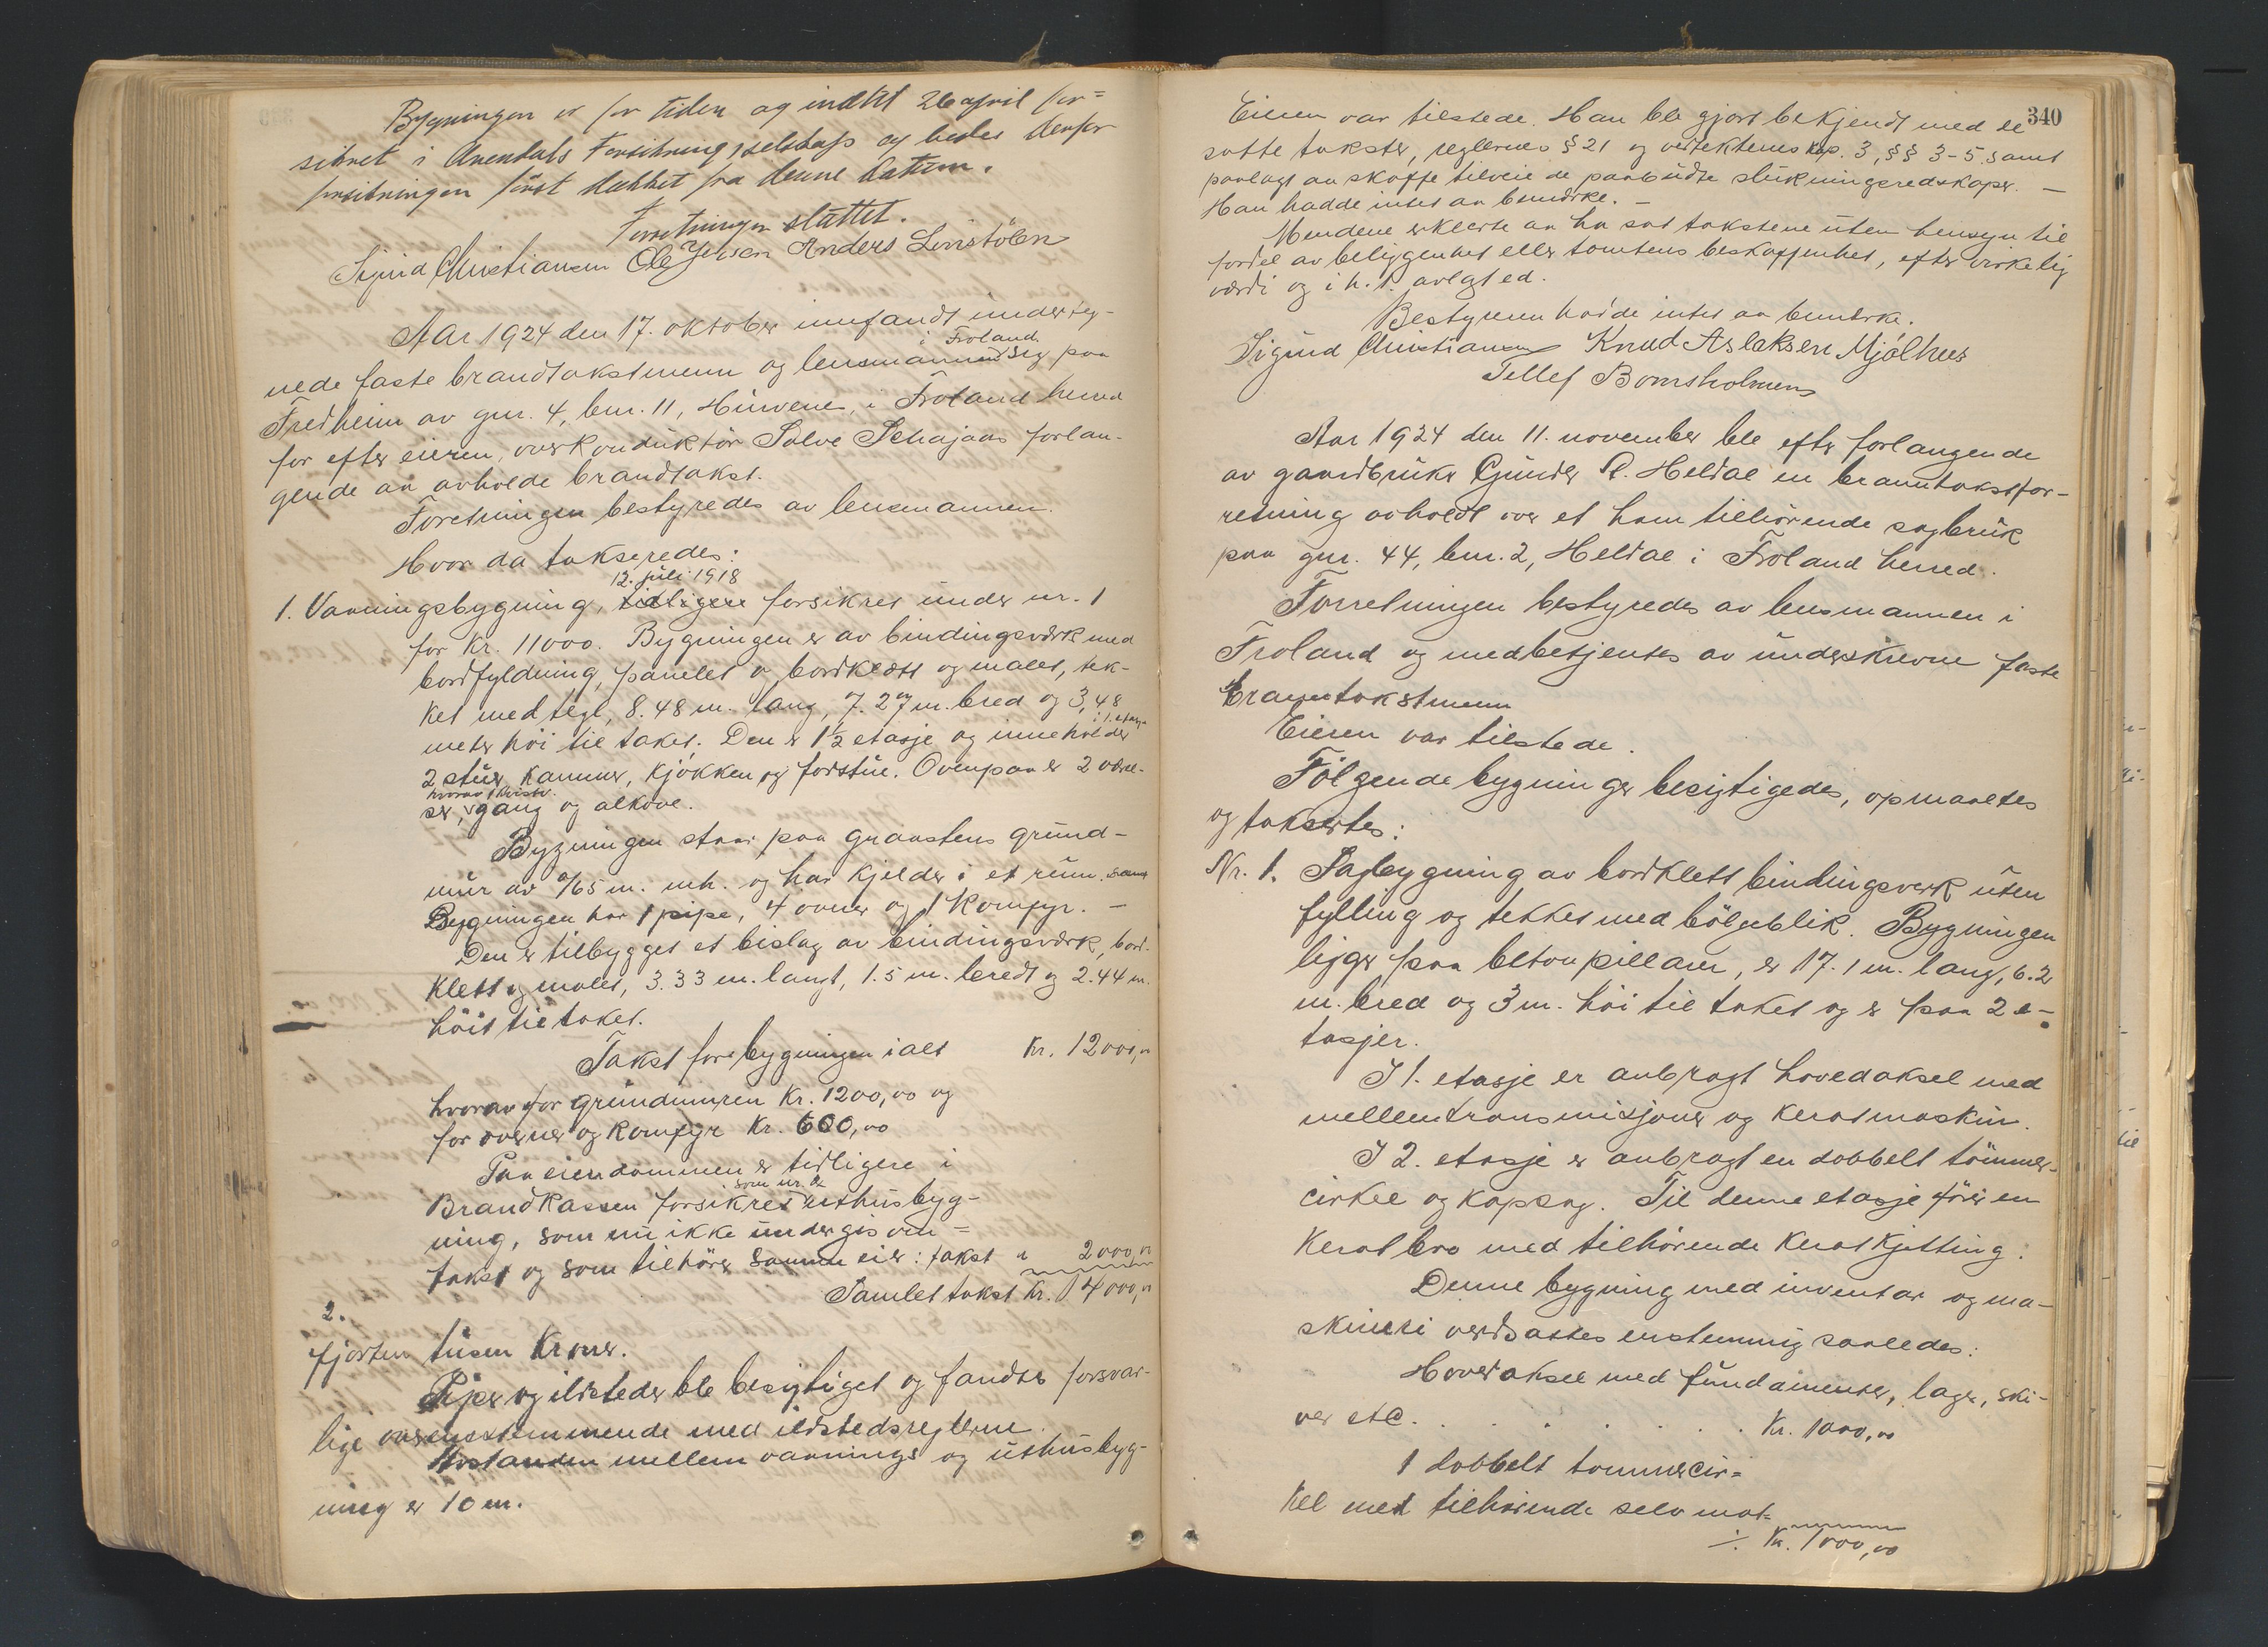 Bygningen er for tiden og indtil 26 april for=
sikret i Arendals Forsikringsselskap og bedes derfor
forsikringen først dækket fra denne datum.
Forretningen sluttet.
Sigurd Christiansen Ole Jensen Anders
Aar 1924 den 17. oktober innfandt underteg-
i Froland
nede faste brandtakstmenn og lensmannen sig paa
Fredheim av gnr. 4, bnr. 11, Hurvenes, i Froland herred
for efter eieren, overkonduktör Salve forlan-
gende aa avholde brandtakst.
Forretningen bestyredes av lensmannen.
Hvor da takseredes:
12. juli 1918
1. Vaaningsbygning, tidligere forsikret under nr. 1
for kr. 11000. Bygningen er av bindingsverk med
bordfyldning, panelet o bordklædt og malet, tek-
ket med tegl, 8.48 m. lang, 7.27 m. bred og 3,48
i 1. etasje
meter höi til taket. Den er 1½ etasje og inneholder
2 stuer, kammer, kjökken og forstue. Ovenpaa er 2 værel-
hvorav 1 kvistv.
ser, gang og alkove.
Bygningen staar paa graastens grund-
mur av 0/65 m. mh. og har kjelder i et rum. samt
Bygningen har 1 pipe, 4 ovner og 1 komfyr. –
Den er tilbygget et bislag av bindingsverk, bord-
klett og malet, 3.33 m. langt, 1.5 m. bredt og 2.44 m.
höit til taket.
Takst for bygningen ialt Kr. 12000,00
hvorav for grundmuren Kr. 1200,00 og
for ovner og komfyr Kr. 600,00
Paa eiendommen er tidligere i
som nr. 2
Brandkassen forsikret uthusbyg-
ning, som nu ikke undergis om=
takst og som tilhörer samme eier: takst " 2000,00
Samlet takst Kr. 14000,00
2.
fjorten tusen kroner.
Piper og ildsteder ble besigtiget og fandtes forsvar-
lige overensstemmende med ildstedsreglerne.
Avstanden mellem vaanings og uthusbyg-
ning er 10 m.
340
Eieren var tilstede. Han ble gjort bekjendt med de
satte takster, reglernes § 21 og vedtektenes kap. 3, §§ 3-5. samt
paalagt aa skaffe tilveie de paabudte slukningsredskaper. –
Han hadde intet aa bemerke. –
Mendene erklerte aa ha sat takstene uten hensyn til
fordel av beliggenhet eller tomtens beskaffenhet, efter virkelig
verdi og i h. t. avlagt ed.
Bestyreren hadde intet aa bemerke.
Sigurd Christiansen Knud Aslaksen Mjölhus
Tellef Bomsholmen
Aar 1924 den 11. november ble efter forlangende
av gaardbruker Gunder Heldal en branntakstfor-
retning avholdt over et ham tilhörende sagbruk
paa gnr. 44, bnr. 2, Heldal i Froland herred.
Forretningen bestyredes av lensmannen i
Froland og medbetjentes av underskrevne faste
branntakstmenn
Eieren var tilstede.
Fölgende bygninger besigtigedes, opmaaltes
og takseres:
Nr. 1. Sagbygning av bordklett bindingsverk uten
fylling og tekket med bölgeblik. Bygningen
ligger paa beton pillarer, er 17.1 m. lang, 6.2
m. bred og 3 m. höi til taket og er paa 2 e-
tasjer.
I 1. etasje er anbragt hovedaksel med
mellemtransmisjoner og keratmaskin.
I 2. etasje er anbragt en dobbelt tömmer-
cirkel og kapsag. Til denne etasje förer en
keratbro med tilhörende keratkjetting.
Denne bygning med inventar og ma-
skineri verdsattes enstemmig saaledes:
Hovedaksel med fundamenter, lager, ski-
ver etc. . . . . . . . Kr. 1000,00
1 dobbelt tommercir=
kel med tilhörende selvmat=
./. Kr. 1000,00